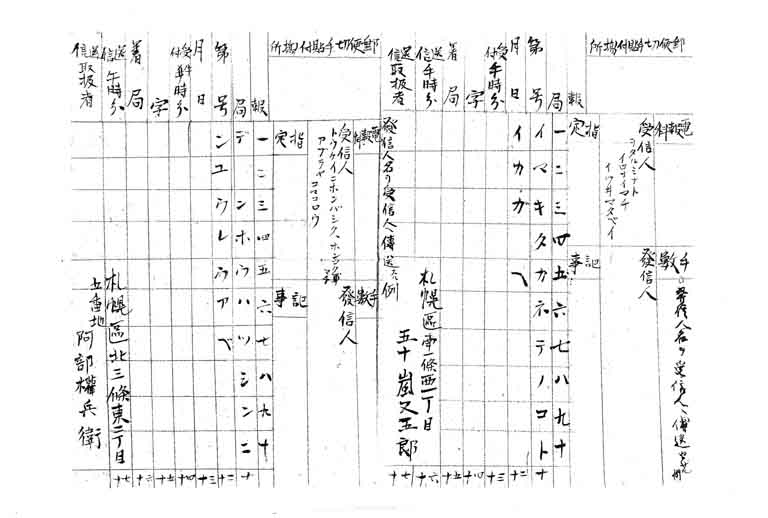 郵便切手貼付場所
電報料
手数
発信人名ヲ受信人ヘ傳送
受信人
ヲタルミナト
イロナイマチ
發信人
指定
記事
報
一二三四五六七八九十
局
イマキタカネテノコト
十
第 号
イカガヘ
月 日
十二
受付 午 時 分
十三
字
十四
著 局
十五
送信 午 時 分
札幌區南一條西一丁目
十六
送信取扱者
五十嵐又五郎
十七
發信人名ヲ受信人ヘ傳送セル例
郵便切手貼付場所
電報料
手数
受信人
トウケイニホンバシク
アブラヤ
發信人
指定
記事
報
一二三四五六七八九十
局
デンホウハツシンニ
十
第 号
ンユウレウアベ
月 日
十二
受付 午 時 分
十三
字
十四
著 局
十五
送信 午 時 分
札幌區北三條東二丁目
十六
送信取扱者
五番地 阿部權兵衛
十七